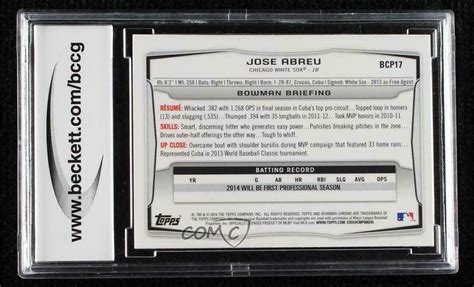 www.beckett.com/bccg
JOSE ABREU
CHICAGO WHITE SOX® · 1B
BCP17
Ht: 6'2" | Wt: 258 | Bats: Right | Throws: Right | Born: 1-29-87, Cruces, Cuba | Signed: White Sox - 2013 as Free Agent
BOWMAN BRIEFING
RÉSUMÉ: Whacked .382 with 1.268 OPS in final season in Cuba's top pro circuit...Topped loop in homers
(13) and slugging (.735)... Thumped .394 with 35 longballs in 2011-12...Took MVP honors in 2010-11.
SKILLS: Smart, discerning hitter who generates easy power...Punishes breaking pitches in the zone...
Drives outer-half offerings the other way...Tough to defend.
UP CLOSE: Overcame bout with shoulder bursitis during MVP campaign that featured 33 home runs.
Represented Cuba in 2013 World Baseball Classic tournament.
BATTING RECORD
YR G AB HR RBI AVG
2014 WILL BE FIRST PROFESSIONAL SEASON
Topps
COMC